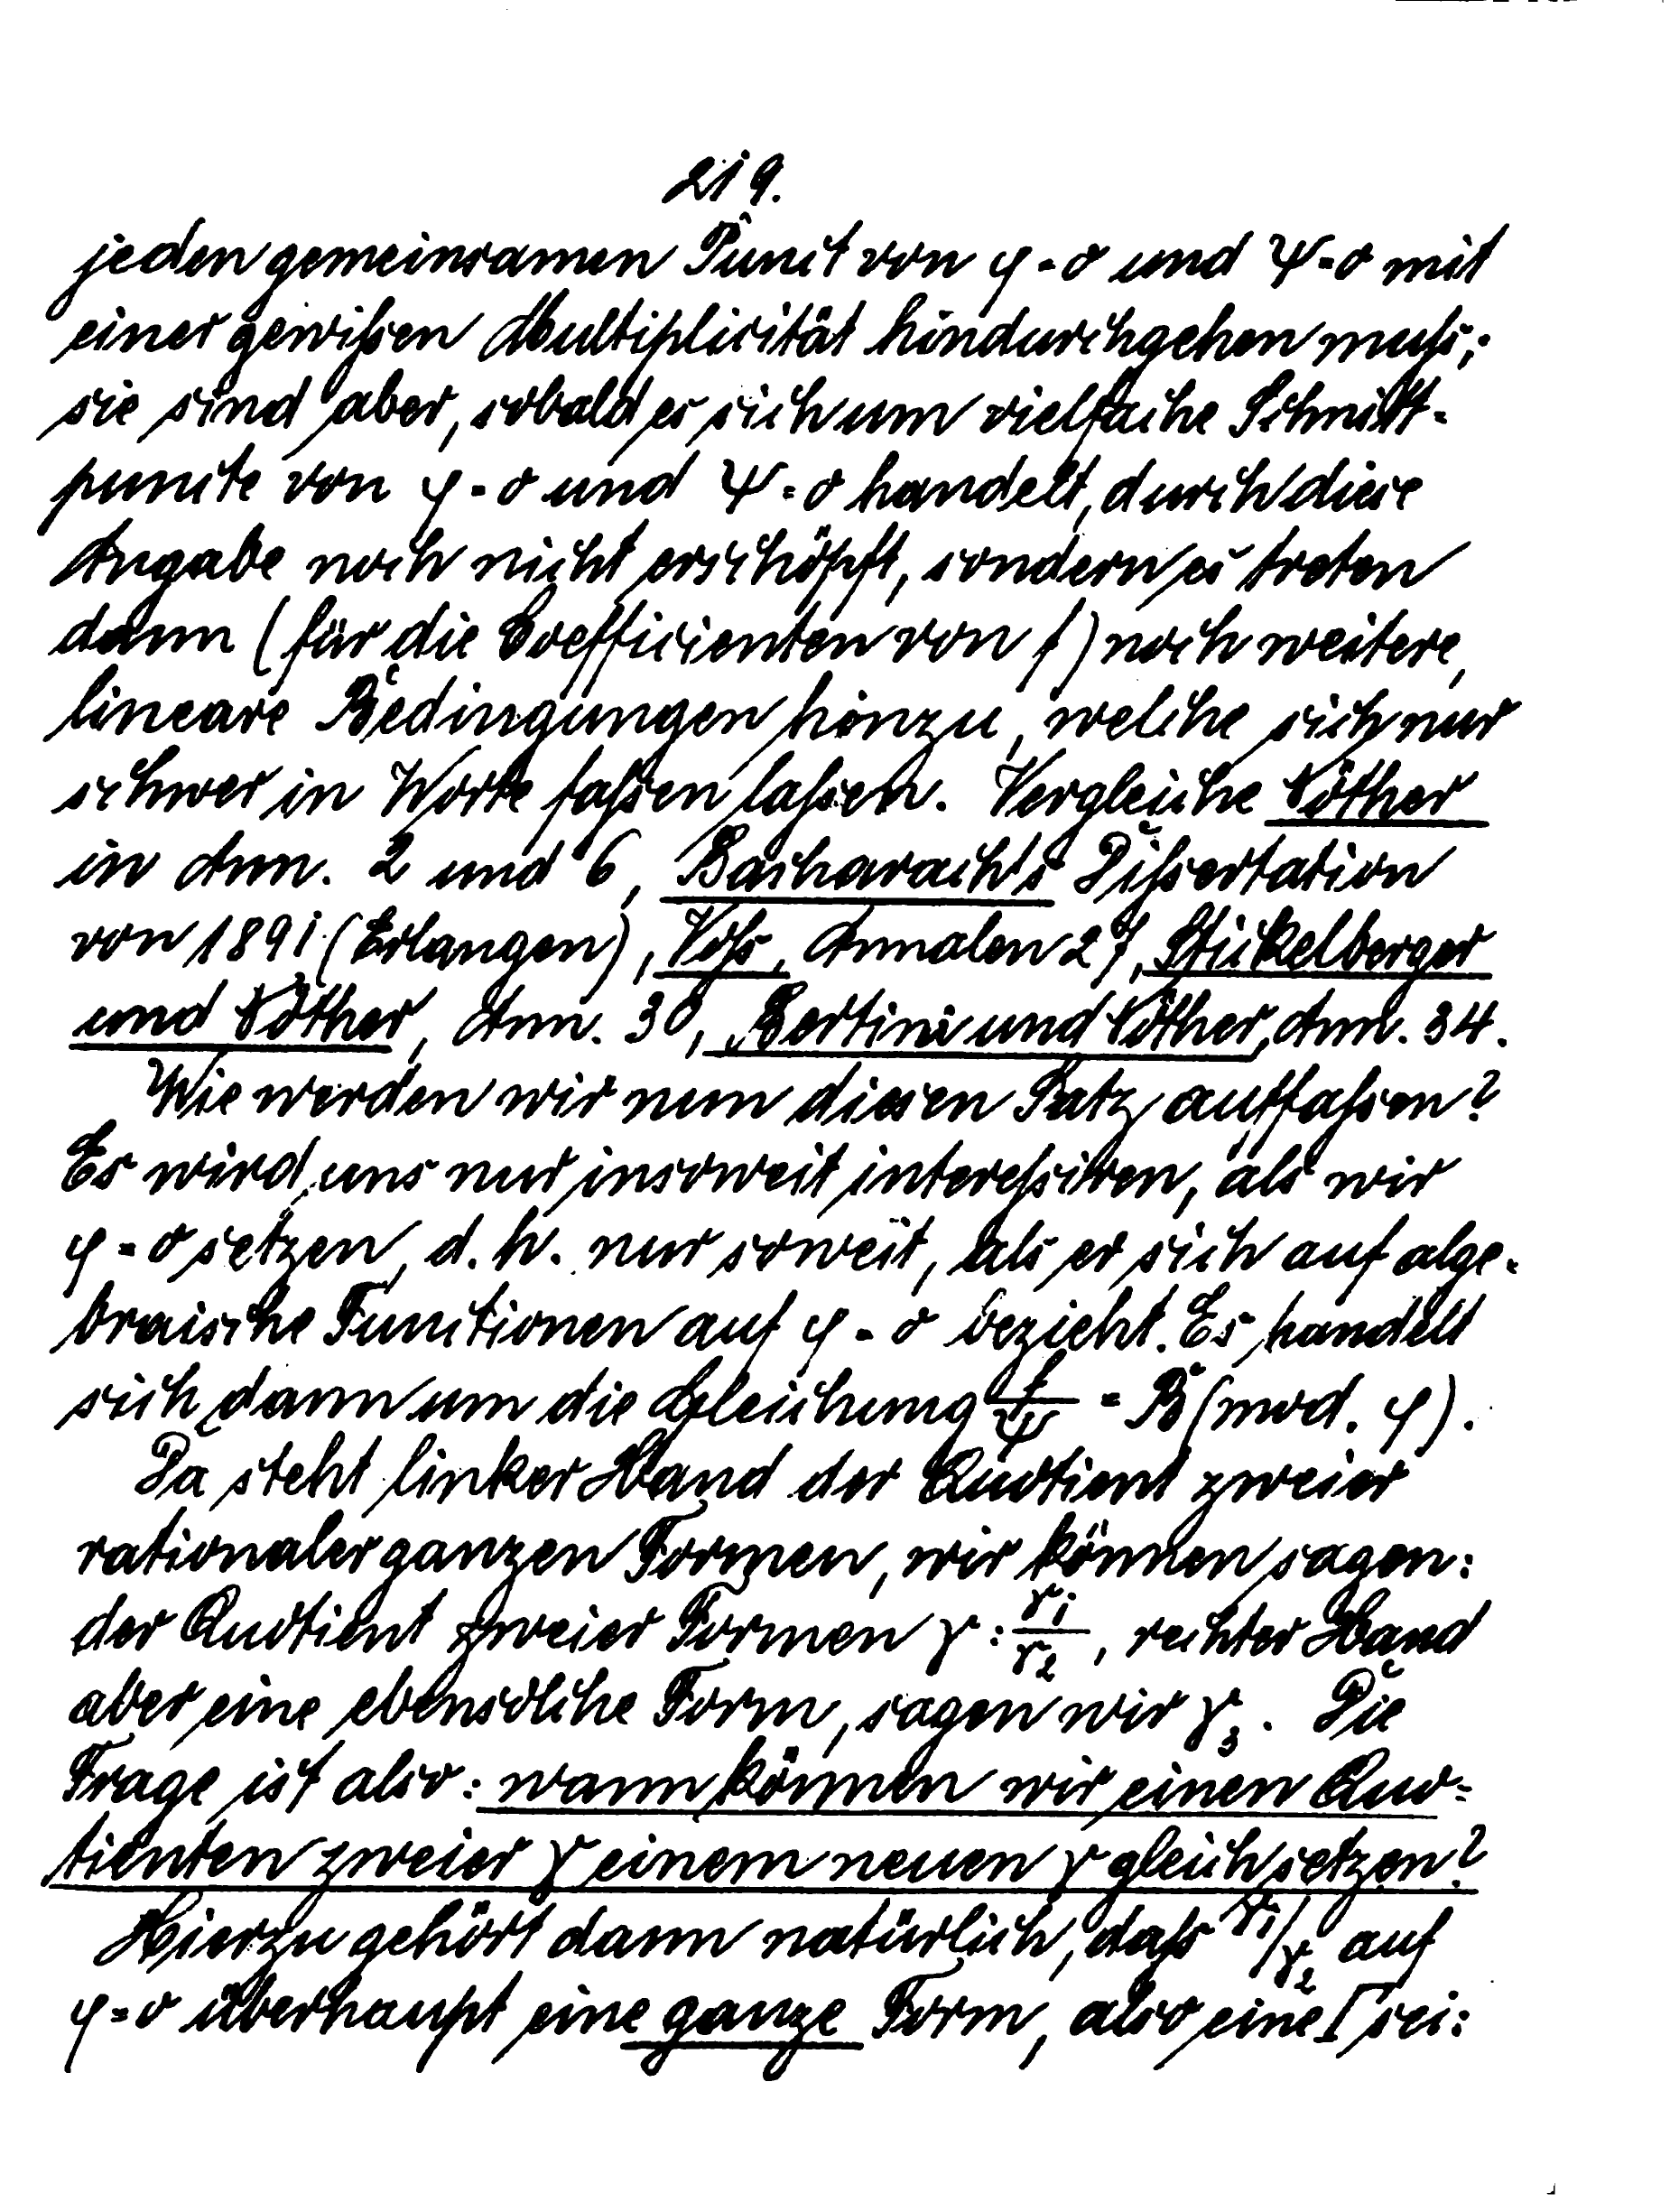 219.
jeden gemeinsamen Punct von φ = 0 und ψ = 0 mit
einer gewißen Multiplicität hindurchgehen muß;
sie sind aber, sobald es sich um vielfache Schnitt-
puncte von φ = 0 und ψ = 0 handelt, durch diese
Angabe noch nicht erschöpft, sondern es treten
dann (für die Coefficienten von f) noch weitere,
lineare Bedingungen hinzu, welche sich nur
schwer in Worte faßen laßen. Vergleiche Nöther
in Ann. 2 und 6, Bacharach's Dißertation
von 1891 (Erlangen), Voß, Annalen 27, Stickelberger
und Nöther, Ann. 30, Bertini und Nöther, Ann. 34.
Wie werden wir nun diesen Satz auffaßen?
Es wird uns nur insoweit intereßiren, als wir
φ = 0 setzen, d. h. nur soweit, als er sich auf alge-
braische Functionen auf φ = 0 bezieht. Es handelt
sich dann um die Gleichung f/ψ = B (mod. φ).
Da steht linker Hand der Quotient zweier
rationaler ganzen Formen, wir können sagen:
der Quotient zweier Formen γ : γ₁/γ₂, rechter Hand
aber eine ebensolche Form, sagen wir γ₃. Die
Frage ist also: wann können wir einen Quo-
tienten zweier γ einem neuen γ gleich setzen?
Hierzu gehört dann natürlich, daß γ₁/γ₂ auf
φ = 0 überhaupt eine ganze Form, also eine Γ sei: